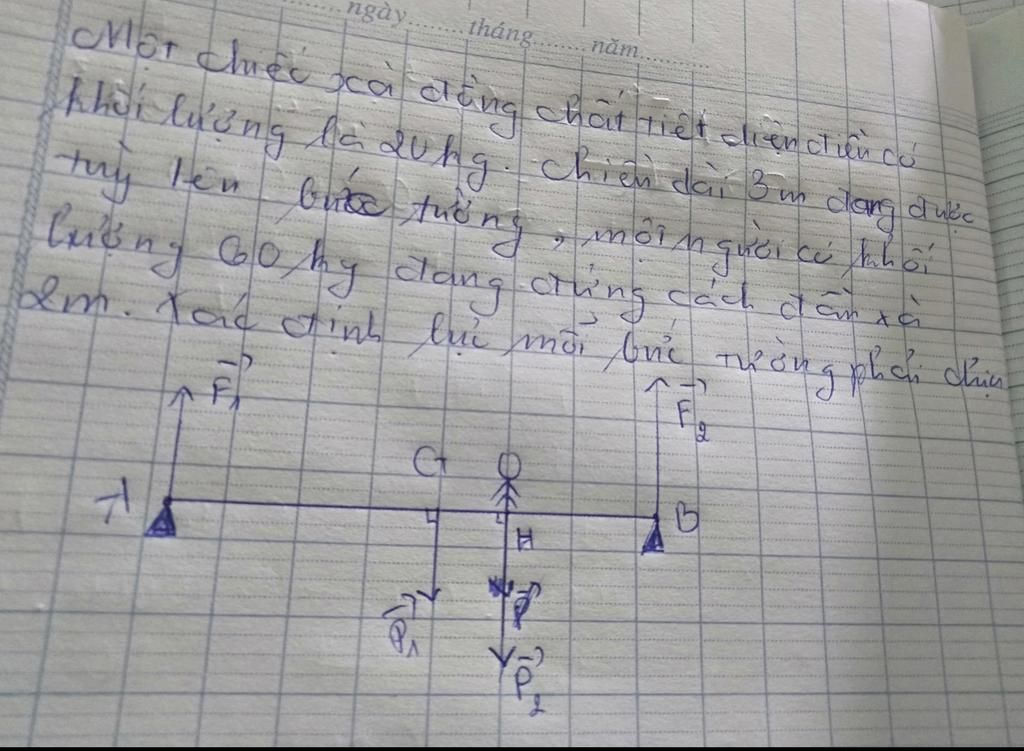 ngày........tháng........năm............
Một chiếc xà đồng chất tiết diện đều có
khối lượng là 20kg. Chiều dài 3m đang được
tuỳ lên bức tường, một người có khối
lượng 60 kg đang đứng cách đầu xà
2m. Xác định lực mỗi bức tường phải chịu
F₁
F₂
G
A
B
H
P
P₁
P₂